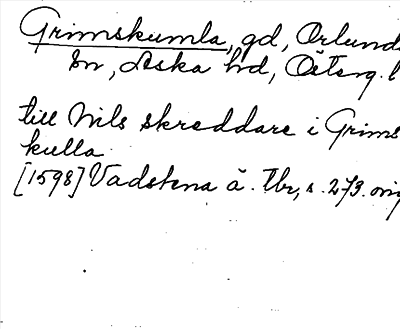 Grimskumla, gd, Örlunda
sn, Aska hd, Österg. l
till Nils skreddare i Grims
kulla
[1598] Vadstena ä. Tbr, s. 273. orig